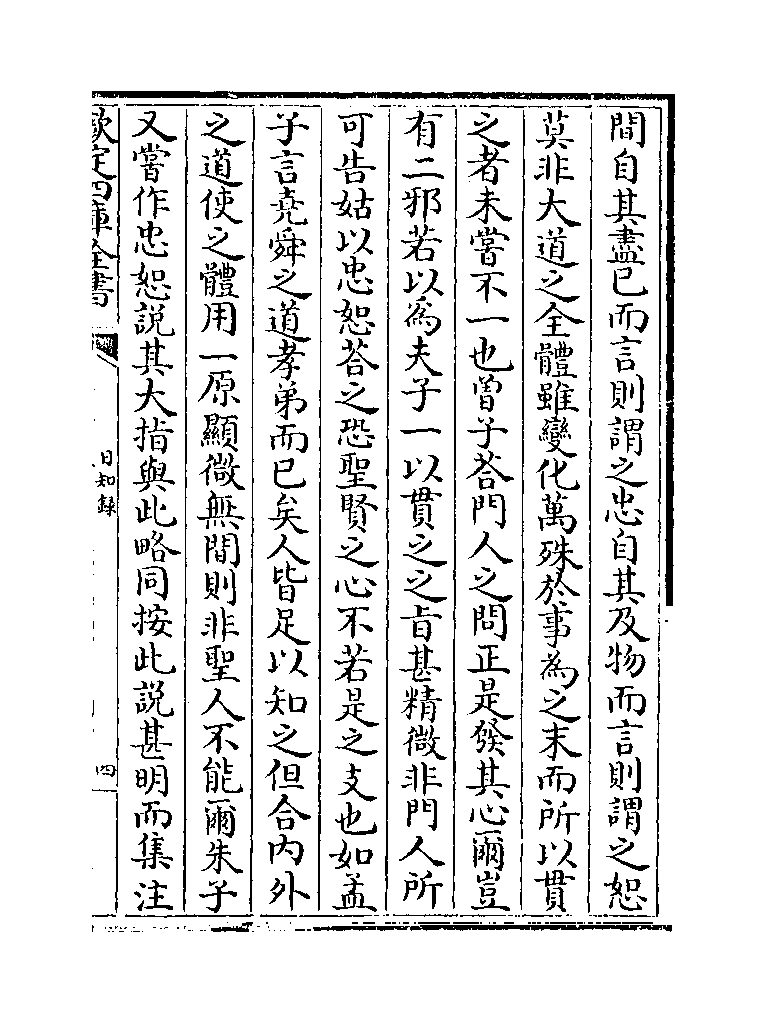 間自其盡已而言則謂之忠自其及物而言則謂之恕
莫非大道之全體雖變化萬殊於事為之末而所以貫
之者未嘗不一也曾子荅門人之問正是發其心爾豈
有二邪若以為夫子一以貫之之㫖甚精微非門人所
可告姑以忠恕荅之恐聖賢之心不若是之支也如孟
子言堯舜之道孝弟而已矣人皆足以知之但合内外
之道使之體用一原顯微無間則非聖人不能爾朱子
又嘗作忠恕説其大指與此略同按此説甚明而集注
欽定四庫全書
日知錄
四